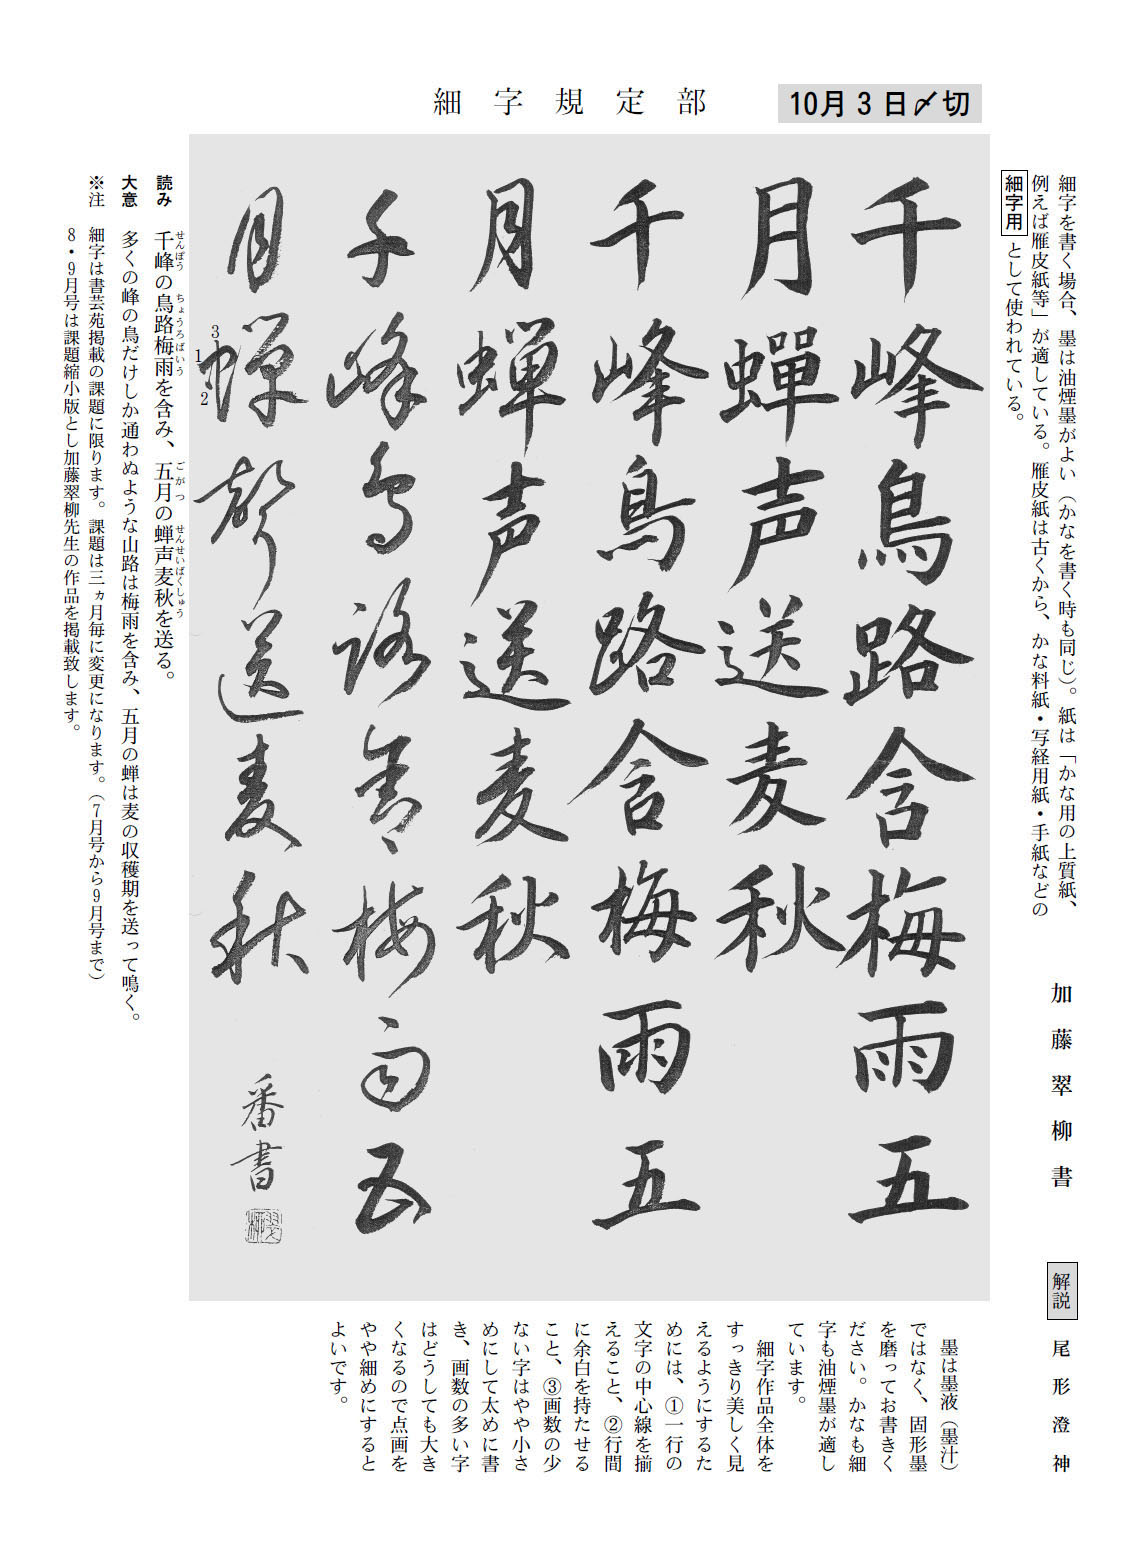 細字規定部
10月3日〆切
細字を書く場合、墨は油煙墨がよい（かなを書く時も同じ）。紙は「かな用の上質紙、
例えば雁皮紙等」が適している。雁皮紙は古くから、かな料紙・写経用紙・手紙などの
細字用として使われている。
加藤翠柳書
千峰鳥路含梅雨五
月蟬声送麦秋
千峰鳥路含梅雨五
月蝉声送麦秋
千峰鳥路含梅雨五
月蝉聲送麦秋
番書
3
1
2
読み 千峰の鳥路梅雨を含み、五月の蝉声麦秋を送る。
せんぽう ちょうろばいう ごがつ せんせいばくしゅう
大意 多くの峰の鳥だけしか通わぬような山路は梅雨を含み、五月の蝉は麦の収穫期を送って鳴く。
※注 細字は書芸苑掲載の課題に限ります。課題は三ヵ月毎に変更になります。（7月号から9月号まで）
8・9月号は課題縮小版とし加藤翠柳先生の作品を掲載致します。
解説 尾形澄神
墨は墨液（墨汁）
ではなく、固形墨
を磨ってお書きく
ださい。かなも細
字も油煙墨が適し
ています。
細字作品全体を
すっきり美しく見
えるようにするた
めには、①一行の
文字の中心線を揃
えること、②行間
に余白を持たせる
こと、③画数の少
ない字はやや小さ
めにして太めに書
き、画数の多い字
はどうしても大き
くなるので点画を
やや細めにすると
よいです。